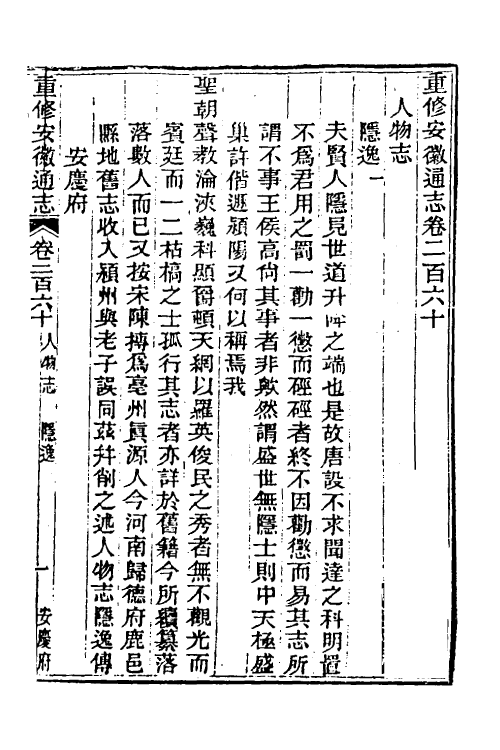 重修安徽通志卷二百六十
人物志
隱逸一
夫賢人隱見世道升降之端也是故唐設不求聞達之科明置
不爲君用之罰一勸一懲而硜硜者終不因勸懲而易其志所
謂不事王侯高尙其事者非歟然謂盛世無隱士則中天極盛
巢許偕遯潁陽又何以稱焉我
聖朝聲敎淪浹巍科顯爵頓天網以羅英俊民之秀者無不觀光而
賓廷而一二枯槁之士孤行其志者亦詳於舊籍今所續纂落
落數人而已又按宋陳摶爲亳州眞源人今河南歸德府鹿邑
縣地舊志收入潁州與老子誤同茲幷削之述人物志隱逸傳
安慶府
重修安徽通志 卷二百六十 人物志 隱逸 一 安慶府